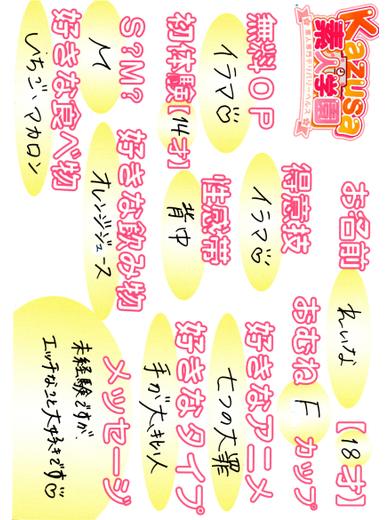 Kazusa
素人学園
お名前 れいな 【18才】
おむね F カップ
得意技 イラマ♡
好きなアニメ 七つの大罪
無料OP イラマ♡
性感帯 背中
好きなタイプ 手が大きい人
S?M? M
好きな飲み物 オレンジジュース
好きな食べ物 いちご、マカロン
メッセージ
未経験ですが、
エッチなこと大好きです♡